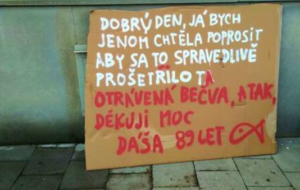 DOBRÝ DEN, JÁ BYCH
JENOM CHTĚLA POPROSIT
ABY SA TO SPRAVEDLIVĚ
PROŠETŘILO TA
OTRÁVENÁ BEČVA, A TAK,
DĚKUJI MOC
DÁŠA 89 LET